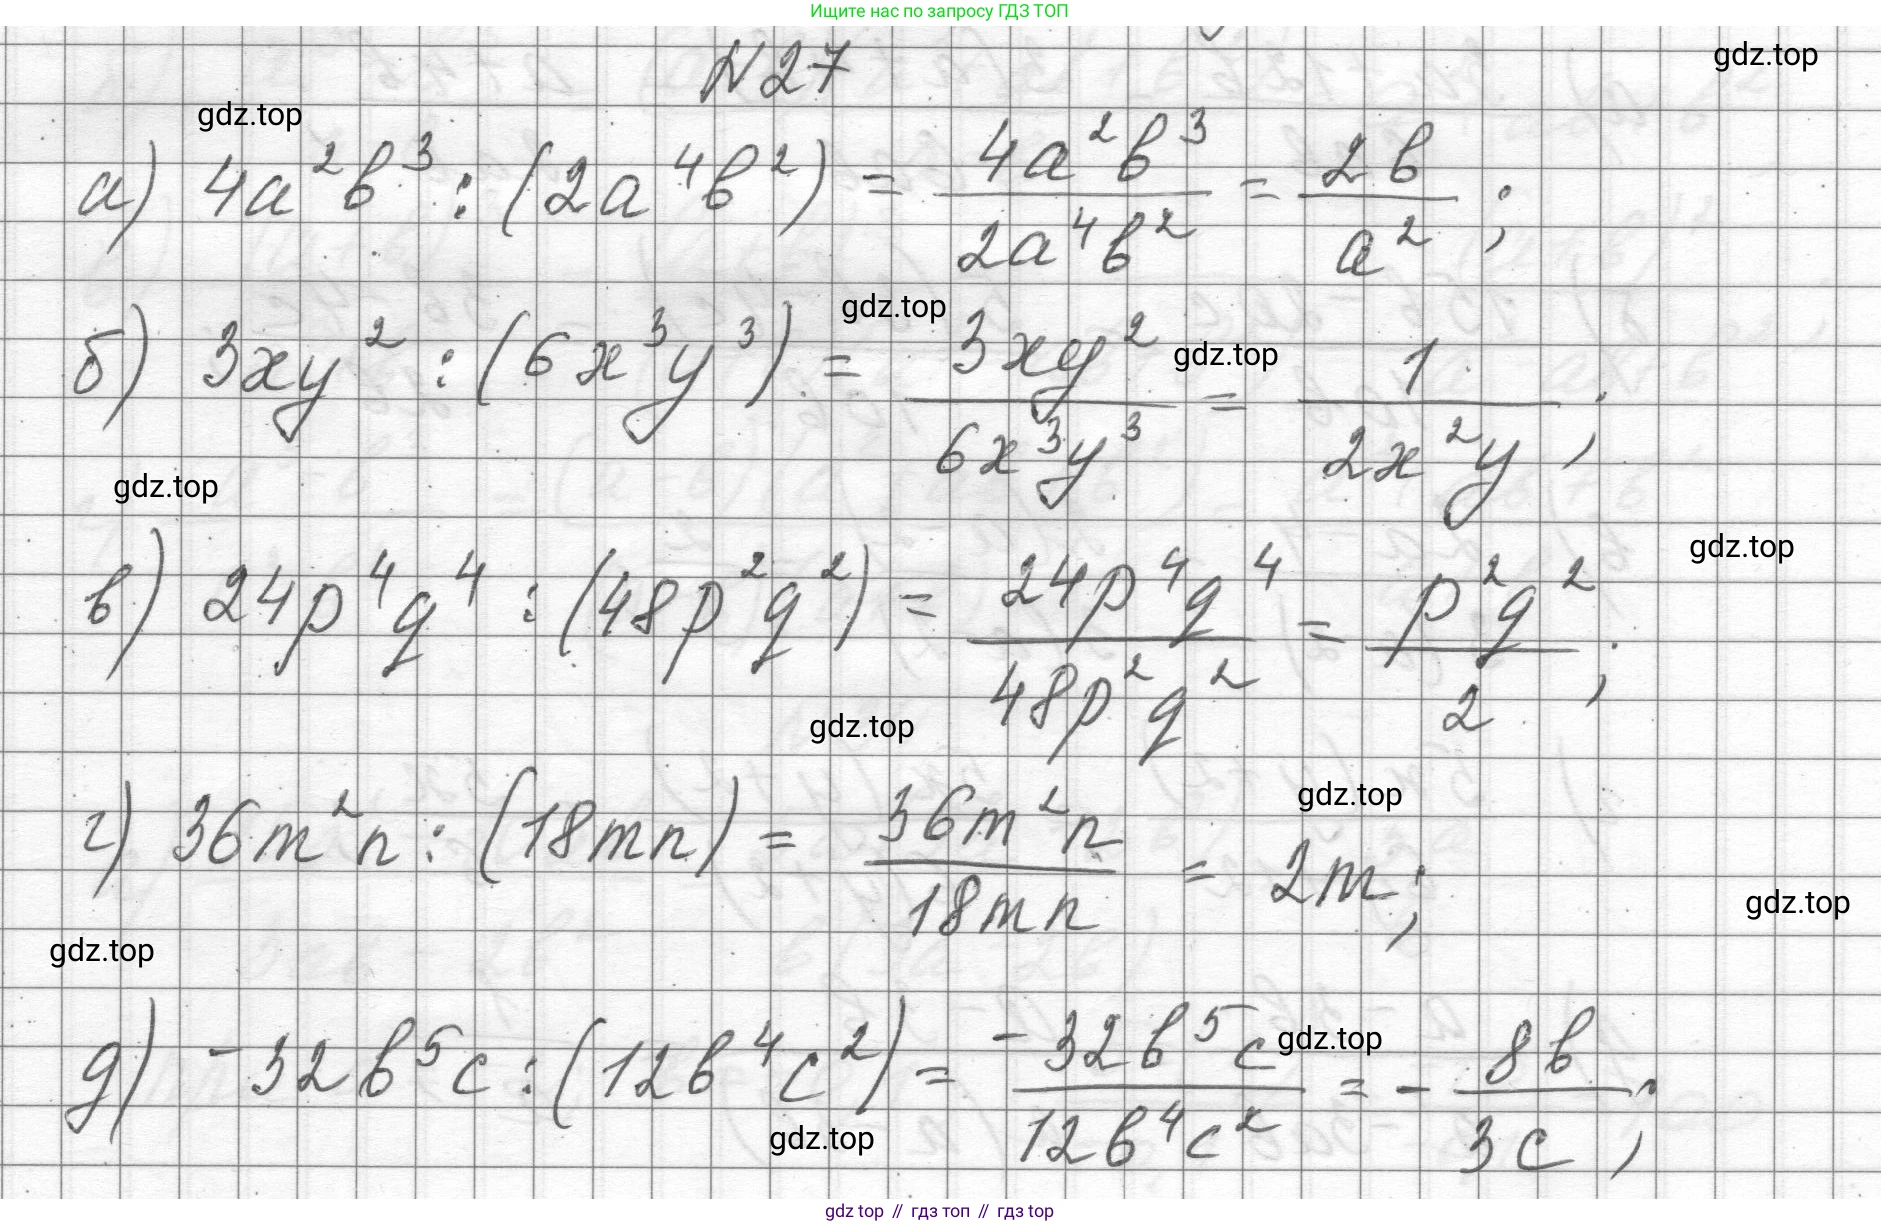 Ищите нас по запросу ГДЗ ТОП
gdz.top
N27
gdz.top
а) 4a²b³ : (2a⁴b²) = 4a²b³/2a⁴b² = 2b/a² ;
gdz.top
б) 3xy² : (6x³y³) = 3xy²/6x³y³ = 1/2x²y ;
gdz.top
gdz.top
gdz.top
в) 24p⁴q⁴ : (48p²q²) = 24p⁴q⁴/48p²q² = p²q²/2 ;
gdz.top
gdz.top
г) 36m²n : (18mn) = 36m²n/18mn = 2m ;
gdz.top
gdz.top
д) -32b⁵c : (12b⁴c²) = -32b⁵c/12b⁴c² = - 8b/3c ;
gdz.top
gdz.top
gdz top // гдз топ // gdz top